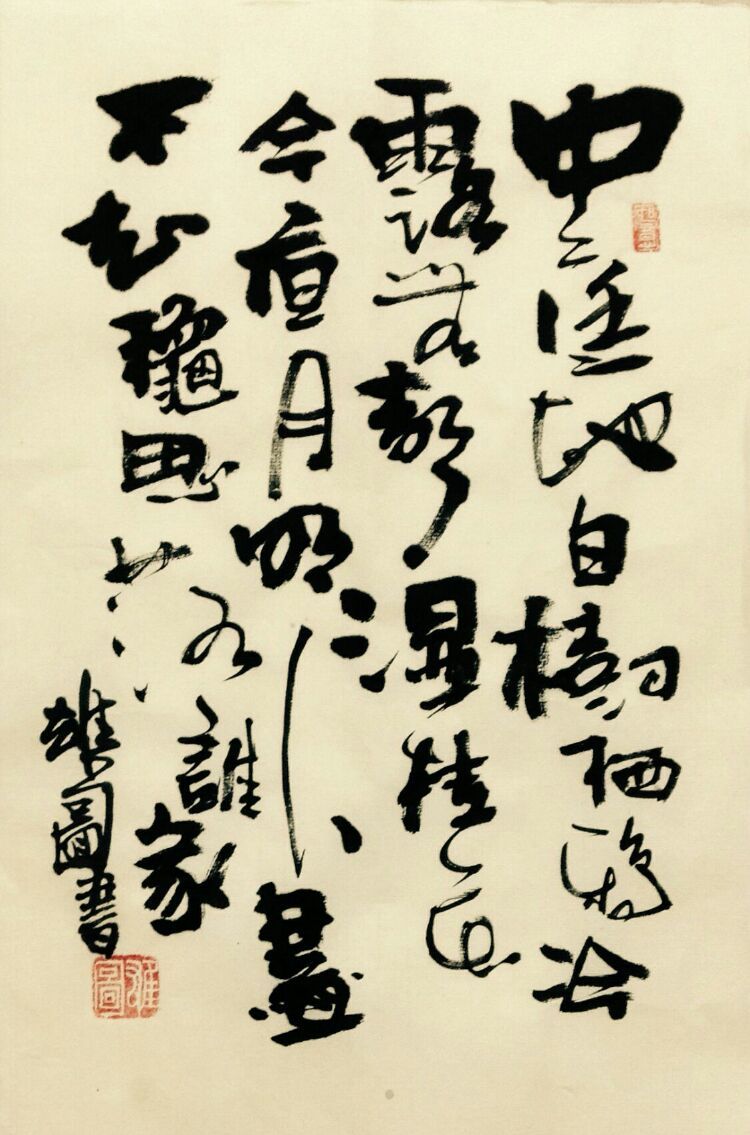 中庭地白樹栖鴉冷
露無聲濕桂花
今夜月明人盡
不知龝思落誰家
雄圖書
雄圖